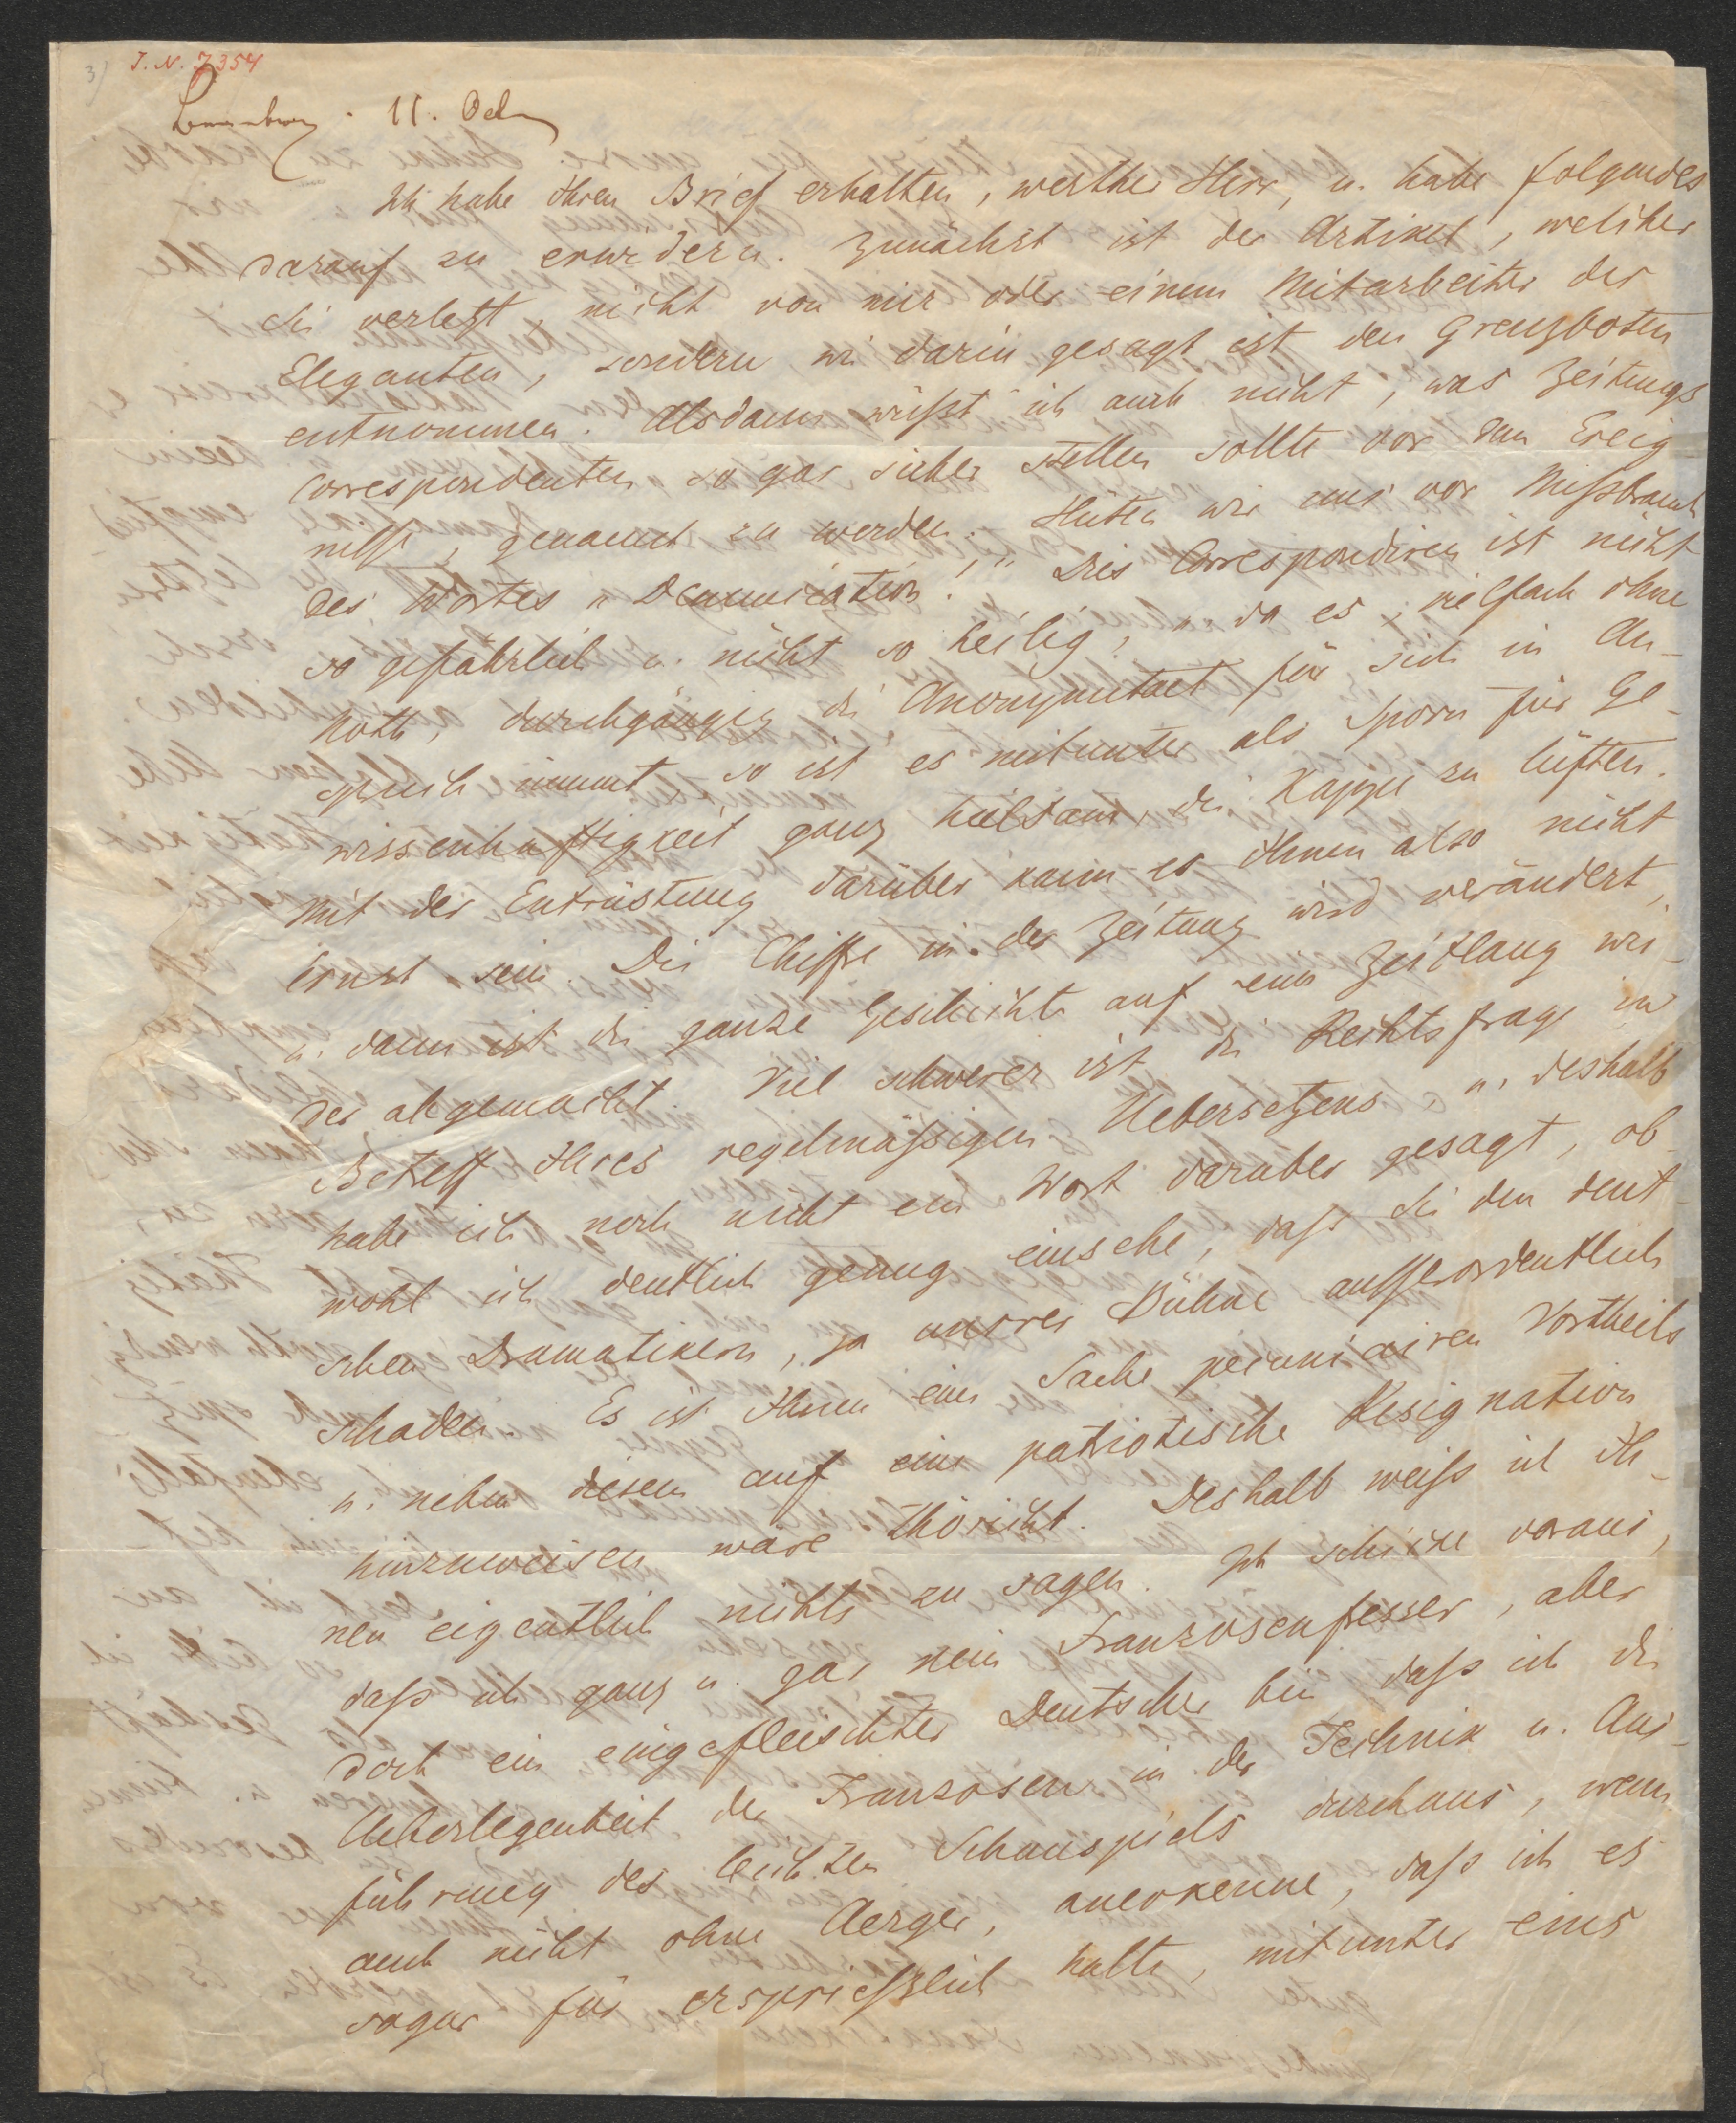 3) J. N. 7354
11. Oct
Ich habe Ihren Brief erhalten, werther Herr, u. habe folgendes
darauf zu erwidern. Zunächst ist der Artikel, welcher
Sie verletzt, nicht von mir oder einem Mitarbeiter der
Eleganten, sondern wie darin gesagt ist den Grenzboten
entnommen. Alsdann wüßt ich auch nicht, was Zeitungs
Correspondenten so gar sicher stellen sollte vor dem Ereig
niß, genannt zu werden. Hüten wir uns vor Mißbrauch
des Wortes „Denunciation!" Dies Correspondiren ist nicht
so gefährlich u. nicht so heilig, u. da es, vielfach ohne
Noth, durchgängig die Anonymitaet für sich in An-
spruch nimmt, so ist es mitunter als Sporn für Ge-
wissenhaftigkeit ganz heilsam, die Kappe zu lüften.
Mit der Entrüstung darüber kann es Ihnen also nicht
Ernst sein. Die Chiffre in der Zeitung wird verändert,
u. dann ist die ganze Geschichte auf eine Zeitlang wie-
der abgemacht. Viel schwerer ist die Rechtsfrage in
Betreff Ihres regelmäßigen Uebersetzens, u. deshalb
habe ich noch nicht ein Wort darüber gesagt, ob-
wohl ich deutlich genug einsehe, daß Sie den deut-
schen Dramatikern, ja unsrer Bühne außerordentlich
schaden. Es ist Ihnen eine Sache pecuniairen Vortheils
u. neben diesem auf eine patriotische Resignation
hinzuweisen wäre thöricht. Deshalb weiß ich Ih-
nen eigentlich nichts zu sagen. Ich schicke voraus,
daß ich ganz u. gar kein Franzosenfresser, aber
doch ein eingefleischter Deutscher bin daß ich die
Ueberlegenheit der Franzosen in der Technik u. Aus-
führung des leichten Schauspiels durchaus, wenn
auch nicht ohne Aerger, anerkenne, daß ich es
sogar für ersprießlich halte, mitunter eins